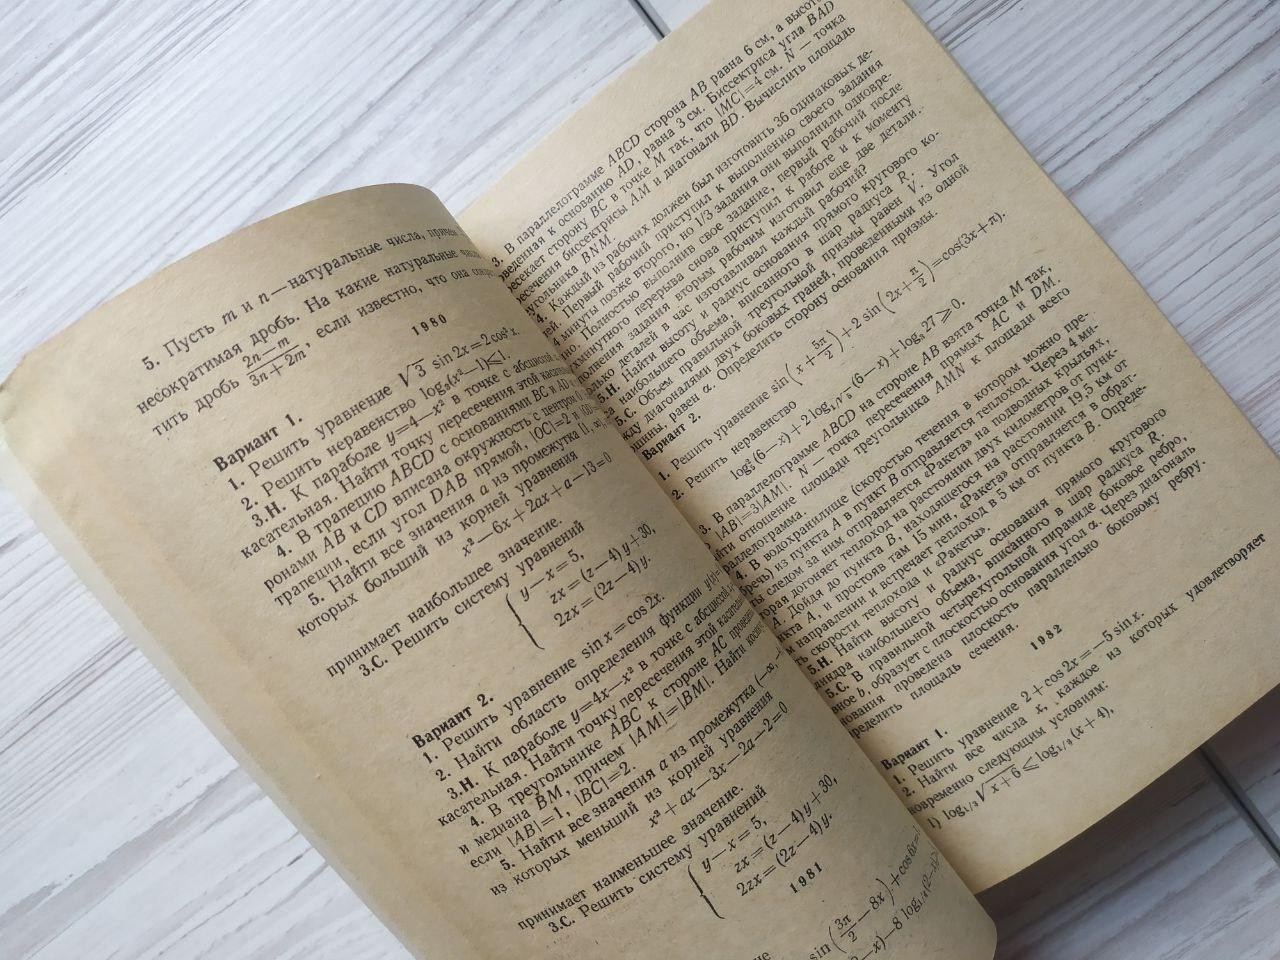 5. Пусть m и n — натуральные числа, причем
несократимая дробь. На какие натуральные числа
тить дробь (2n—m)/(3n+2m), если известно, что она сократ
1980
Вариант 1.
1. Решить уравнение √3 sin 2x=2cos² x.
2. Решить неравенство log₄(x²—1)⩽1.
3.Н. К параболе y=4—x² в точке с абсциссой
касательная. Найти точку пересечения этой касательной
4. В трапецию ABCD с основаниями BC и AD
ронами AB и CD вписана окружность с центром O.
трапеции, если угол DAB прямой, |OC|=2 и |OD|
5. Найти все значения a из промежутка [1, ∞),
которых больший из корней уравнения
x²—6x+2ax+a—13=0
принимает наибольшее значение.
3.С. Решить систему уравнений
y—x=5,
zx=(z—4)y+30,
2zx=(2z—4)y.
Вариант 2.
1. Решить уравнение sin x=cos 2x.
2. Найти область определения функции
3.Н. К параболе y=4x—x² в точке с абсциссой
касательная. Найти точку пересечения этой касательной
4. В треугольнике ABC к стороне AC проведены
и медиана BM, причем |AM|=|BM|. Найти косинус
если |AB|=1, |BC|=2.
5. Найти все значения a из промежутка (—∞,
из которых меньший из корней уравнения
x²+ax—3x—2a—2=0
принимает наименьшее значение.
3.С. Решить систему уравнений
y—x=5,
zx=(z—4)y+30,
2zx=(2z—4)y.
1981
sin(3π/2—8x)+cos 6x=
—x)—8 log₁/₄(2—x)
3. В параллелограмме ABCD сторона AB равна 6 см, а высота
веденная к основанию AD, равна 3 см. Биссектриса угла BAD
секает сторону BC в точке M так, что |MC|=4 см. N — точка
ресечения биссектрисы AM и диагонали BD. Вычислить площадь
угольника BNM.
4. Каждый из рабочих должен был изготовить 36 одинаковых де-
ей. Первый рабочий приступил к выполнению своего задания
минуты позже второго, но 1/3 задания они выполнили одновре-
Полностью выполнив свое задание, первый рабочий после
минутного перерыва снова приступил к работе и к моменту
лнения задания вторым рабочим изготовил еще две детали.
олько деталей в час изготавливал каждый рабочий?
5.Н. Найти высоту и радиус основания прямого кругового ко-
са наибольшего объема, вписанного в шар радиуса R.
5.С. Объем правильной треугольной призмы равен V. Угол
жду диагоналями двух боковых граней, проведенными из одной
шины, равен α. Определить сторону основания призмы.
Вариант 2.
1. Решить уравнение sin(x+5π/2)+2 sin(2x+π/2)=cos(3x+π).
2. Решить неравенство
log₃²(6—x)+2 log₁/√₃(6—x)+log₃ 27⩾0.
3. В параллелограмме ABCD на стороне AB взята точка M так,
|AB|=3|AM|. N — точка пересечения прямых AC и DM.
йти отношение площади треугольника AMN к площади всего
раллелограмма.
4. В водохранилище (скоростью течения в котором можно пре-
речь) из пункта A в пункт B отправляется теплоход. Через 4 ми-
ы следом за ним отправляется «Ракета» на подводных крыльях,
орая догоняет теплоход на расстоянии двух километров от пунк-
A. Дойдя до пункта B, находящегося на расстоянии 19,5 км от
нкта A, и простояв там 15 мин, «Ракета» отправляется в обрат-
м направлении и встречает теплоход в 5 км от пункта B. Опреде-
ть скорости теплохода и «Ракеты».
5.Н. Найти высоту и радиус основания прямого кругового
линдра наибольшего объема, вписанного в шар радиуса R.
5.С. В правильной четырехугольной пирамиде боковое ребро,
вное b, образует с плоскостью основания угол α. Через диагональ
нования проведена плоскость параллельно боковому ребру.
ределить площадь сечения.
1982
Вариант 1.
1. Решить уравнение 2+cos 2x=—5 sin x.
2. Найти все числа x, каждое из которых удовлетворяет
новременно следующим условиям:
1) log₁/₂ √x+6⩽log₁/₂(x+4),